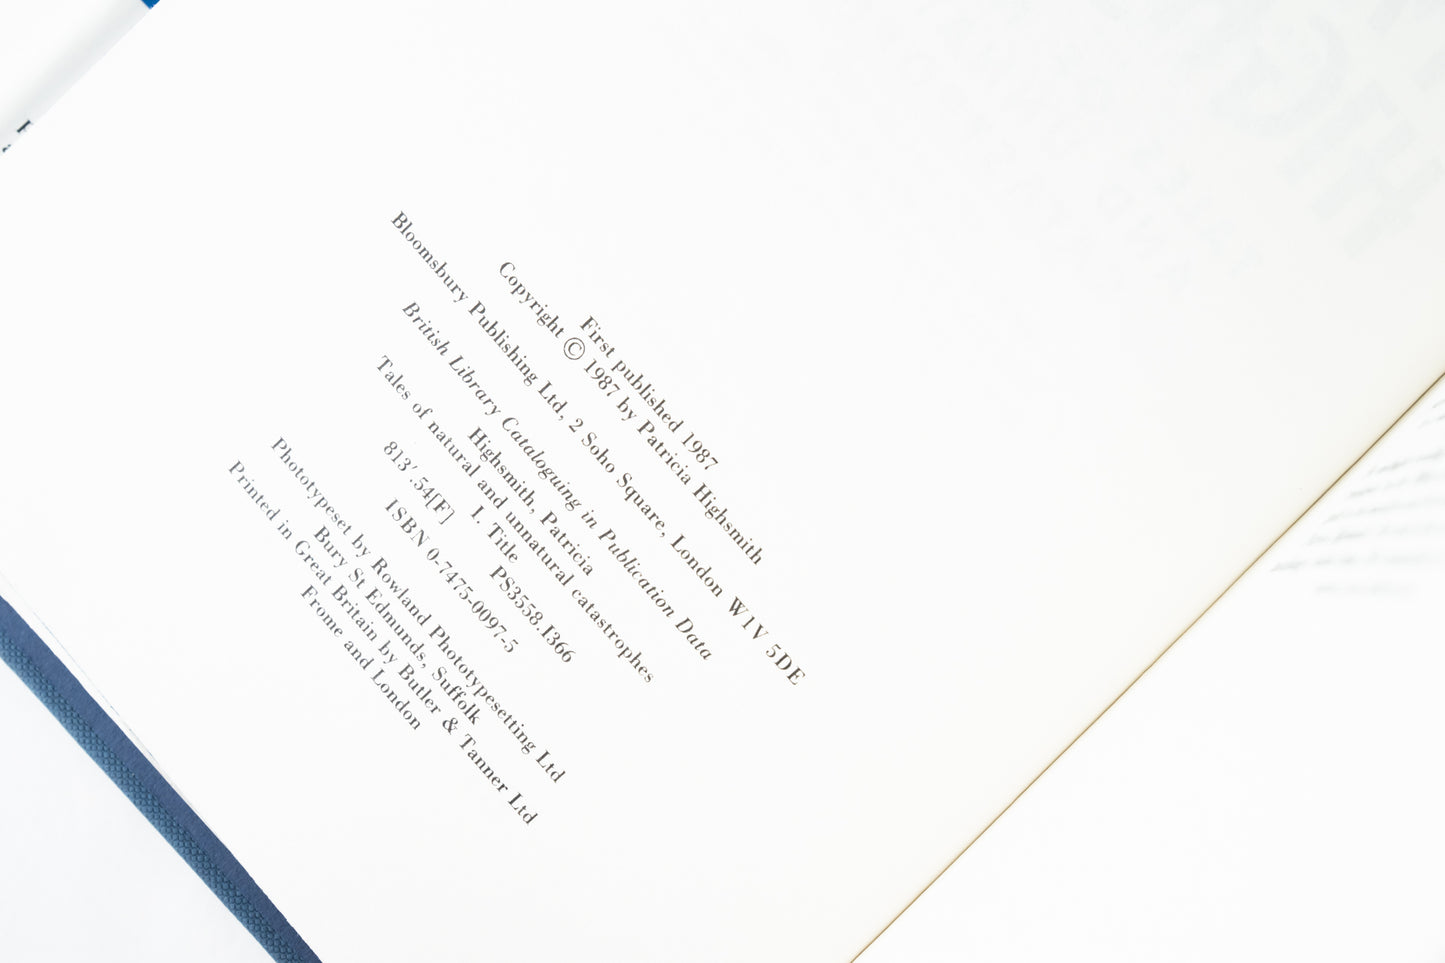 First published 1987
Copyright © 1987 by Patricia Highsmith
Bloomsbury Publishing Ltd, 2 Soho Square, London W1V 5DE
British Library Cataloguing in Publication Data
Highsmith, Patricia
Tales of natural and unnatural catastrophes
I. Title
813'.54[F] PS3558.I366
ISBN 0-7475-0097-5
Phototypeset by Rowland Phototypesetting Ltd
Bury St Edmunds, Suffolk
Printed in Great Britain by Butler & Tanner Ltd
Frome and London